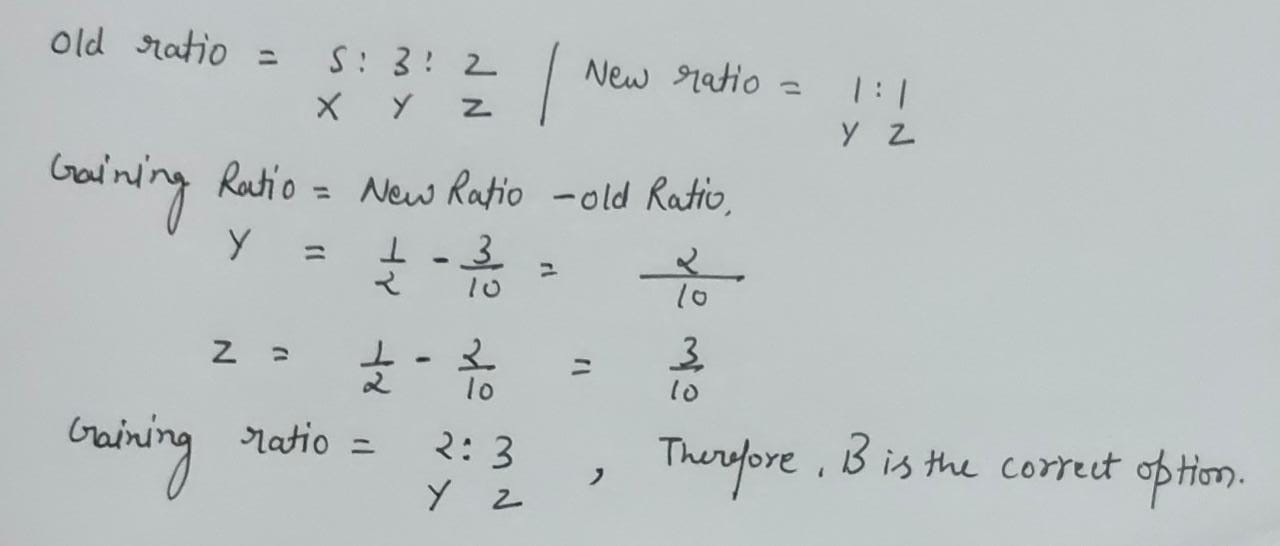 Old ratio = 5 : 3 : 2 / New ratio = 1 : 1
X Y Z Y Z
Gaining Ratio = New Ratio - old Ratio.
Y = 1/2 - 3/10 = 2/10
Z = 1/2 - 2/10 = 3/10
Gaining ratio = 2 : 3 , Therefore, B is the correct option.
Y Z